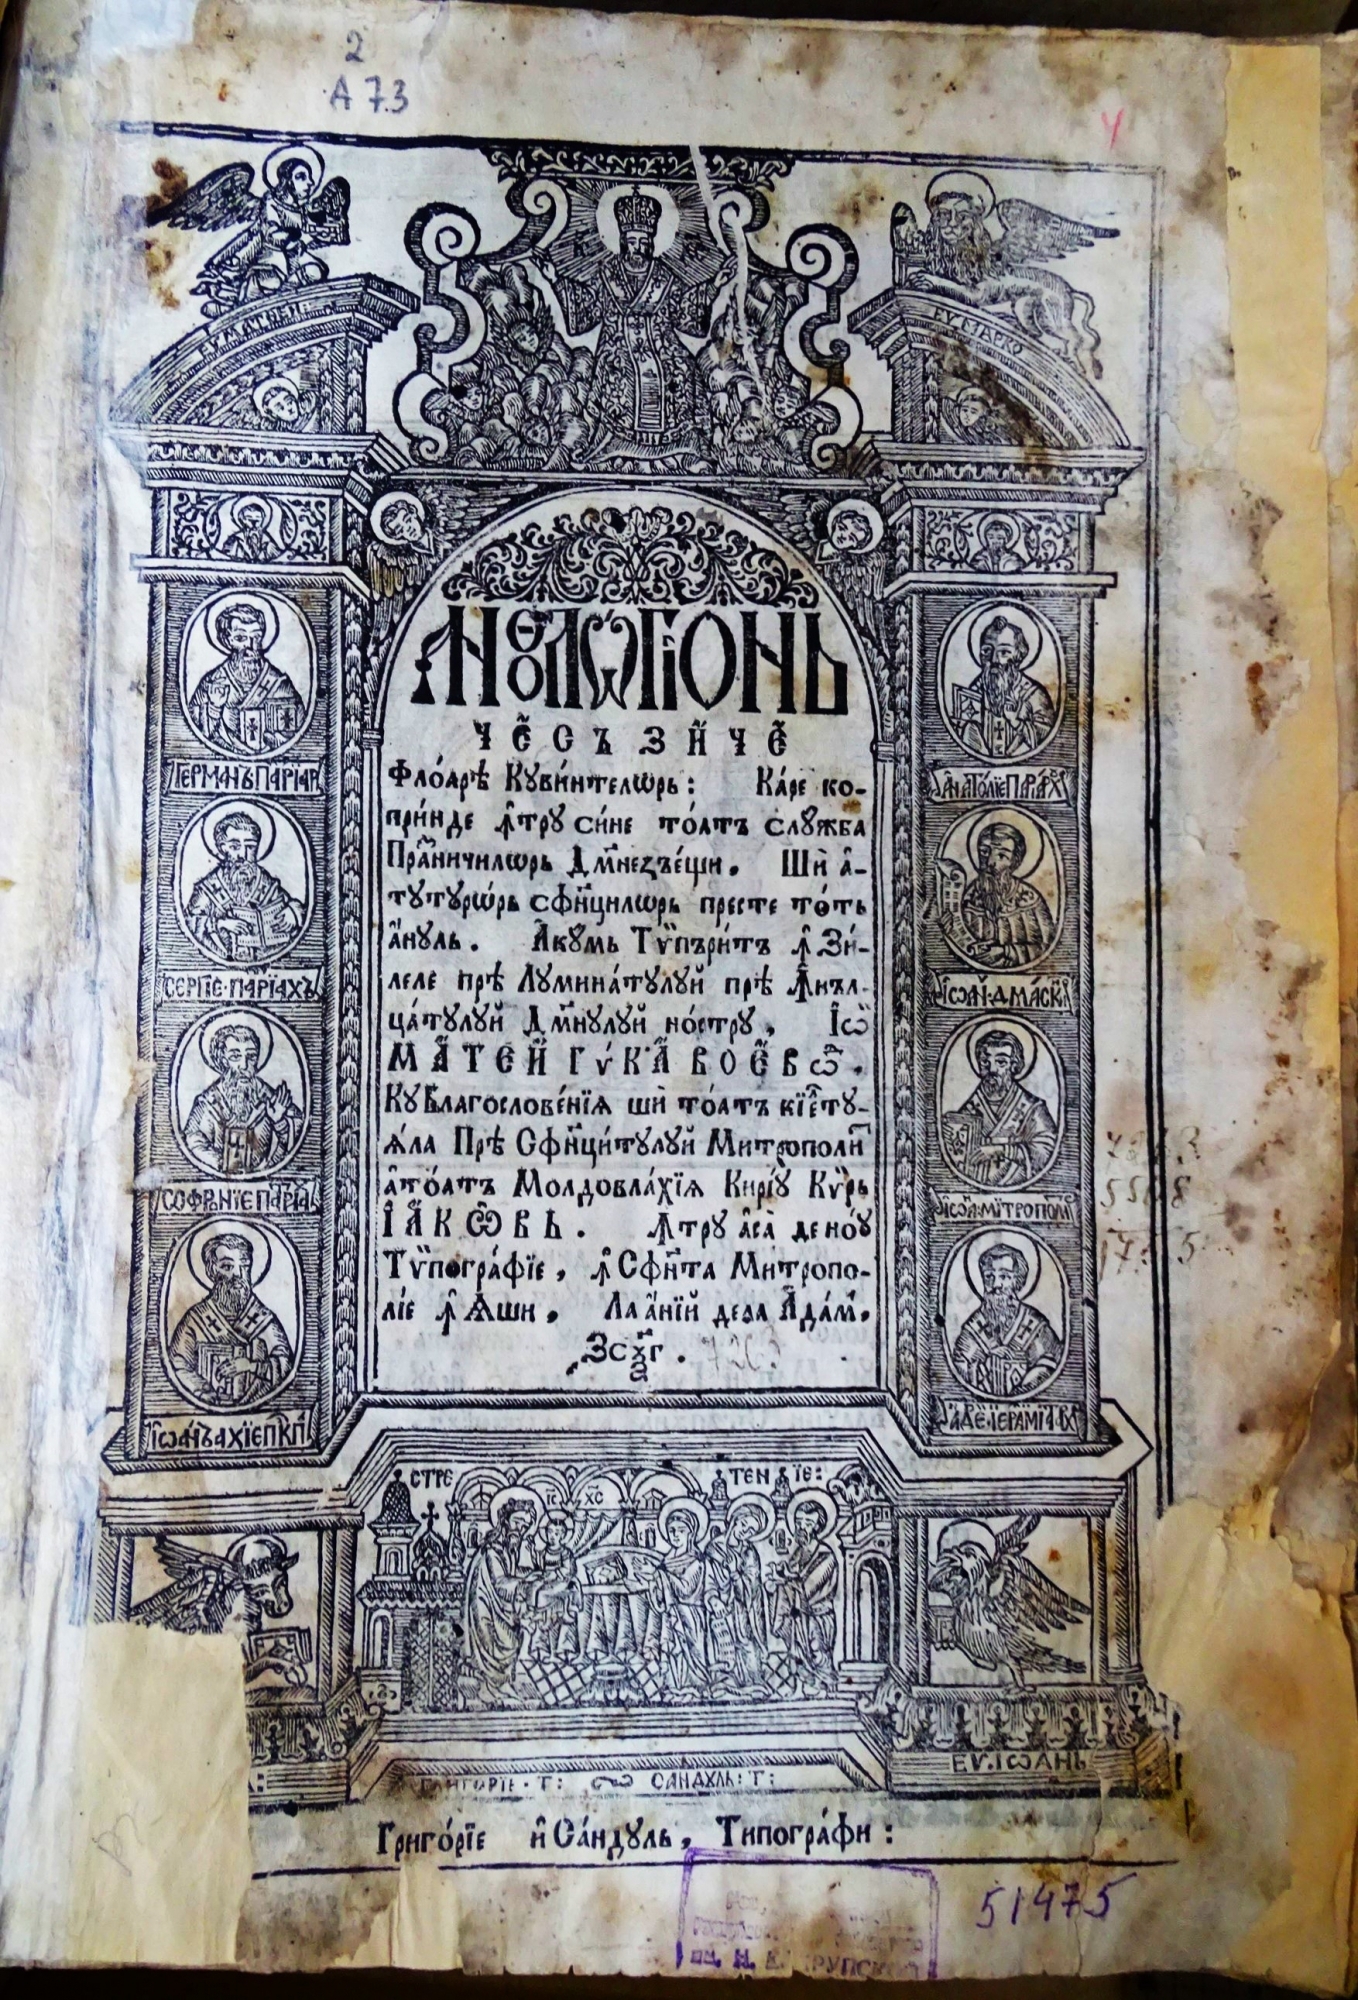 2
А 73
ЕѴ МАТѲЕЙ
ЕѴ МАРКО
АНѲОЛѠГІОНЬ
ЧЕ́ СЪ ЗИ́ЧЕ
Флоа́рѣ Кꙋви́нтелѡрь : Ка́ре ко-
при́нде ꙟтрꙋ си́не то́атъ слꙋжба
Пра́зничилѡрь Дмнеꙁъе́щи. Ши а-
тꙋтꙋрѡ́рь сфи́нцилѡрь престе то́ть
а́нꙋль. Акꙋмь Тѵпъри́тъ ꙟ Зи́-
леле прѣ Лꙋмина́тꙋлꙋй прѣ ꙟнъл-
ца́тꙋлꙋй Дмнꙋлꙋй но́стрꙋ, Іѡ
МАТЕЙ ГѴКА ВОЕВѠ.
Кꙋ Благослове́нїѧ ши то́атъ кїе́тꙋ-
ѧ́ла Прѣ Сфинци́тꙋлꙋй Митрополи
а то́атъ Молдовла́хїѧ Ки́рїꙋ Кѵрь
ІАКѠВЬ. ꙟтрꙋ аса̀ де но́ꙋ
Тѵпогра́фїе, ꙟ Сфи́нта Митропо-
лі́е ꙟ Ꙗши, Ла а́нїй дела Ада́м,
҂Зсѯг.
ГЕРМАНЪ ПАРІАР
СЕРГІЕ ПАРІАХЪ
СОФРѠНІЕ ПАТРІА
ІѠАНЪ АХІЕПКП
АНАТОЛІЕ ПАРІАРХ
ІѠАН ДМАСКИ
ІѠА МІТРОПОЛИ
СТРЕ ТЕНЇЕ:
ІС ХС
ЕѴ. ІѠАНЬ
ГРИГОРІЕ · Т : САНДꙊЛЬ : Т :
Григо́рїе и̂ Са́ндꙋль, Типогра́фи :
51475